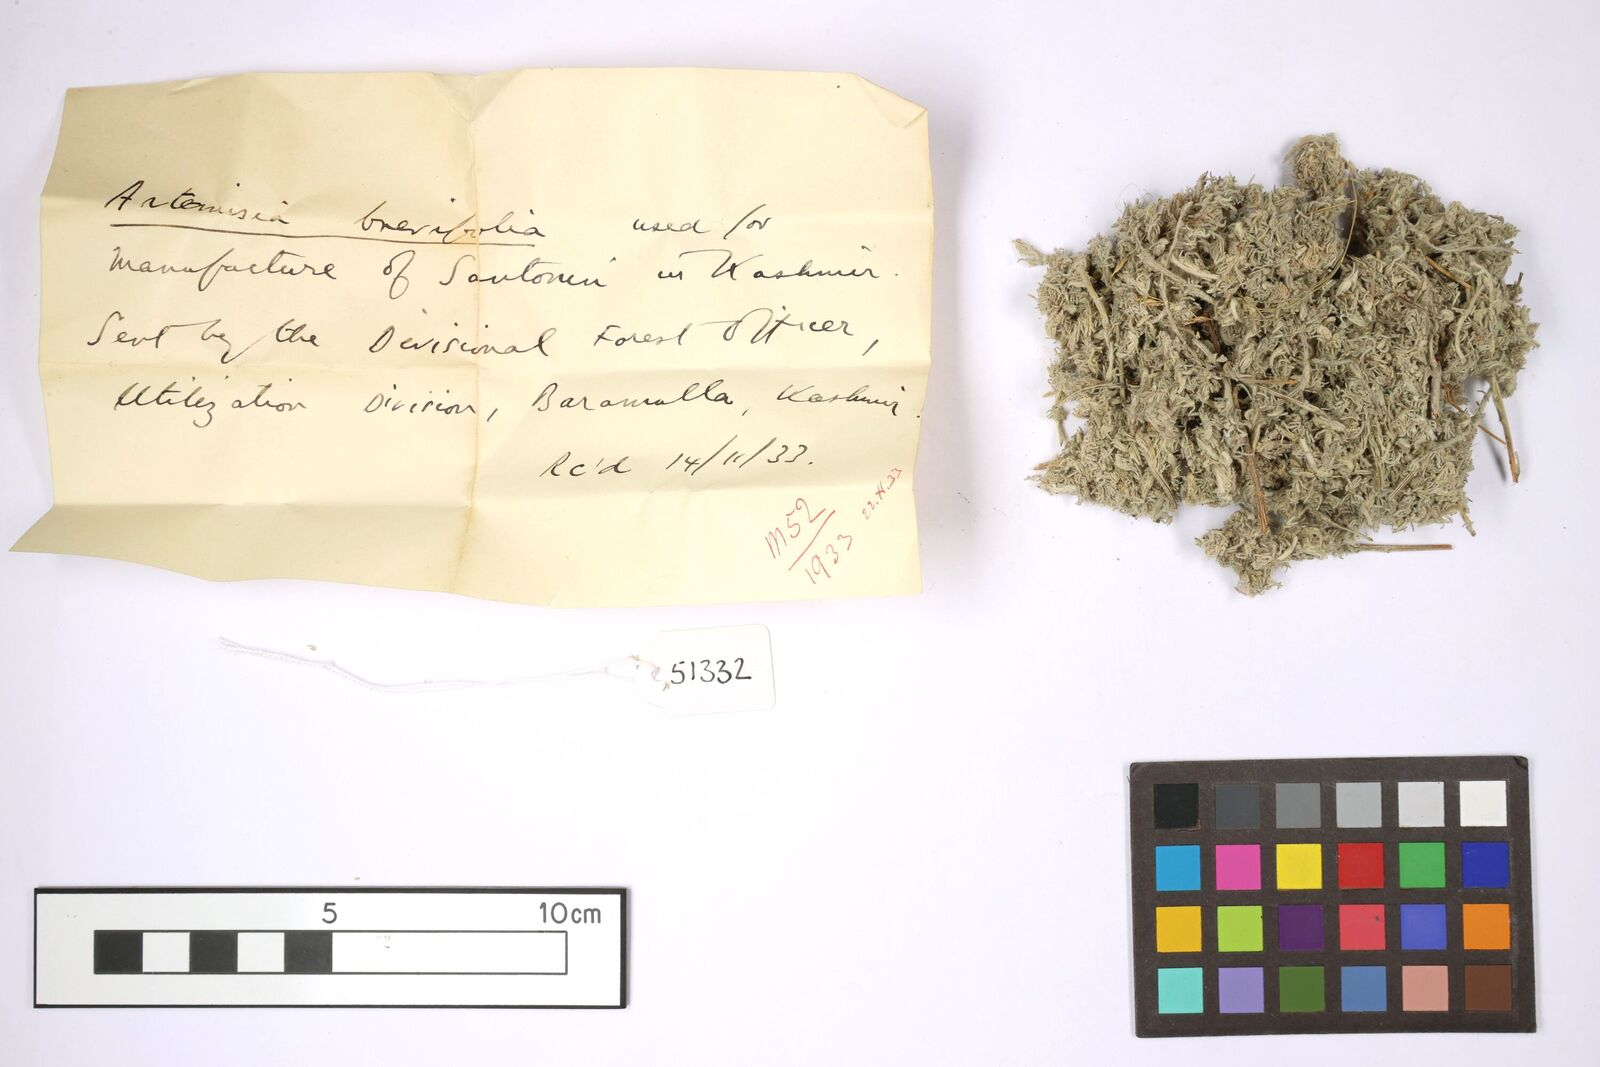 Artemisia brevifolia used for
Manufacture of Santonin in Kashmir.
Sent by the Divisional Forest Officer,
Utilization Division, Baramulla, Kashmir.
Rc'd 14/11/33.
M52
1933
22.XI.33
51332
5 10cm